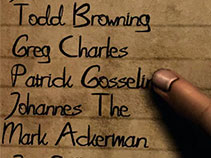 Todd Browning
Greg Charles
Patrick Gosselin
Johannes The
Mark Ackerman